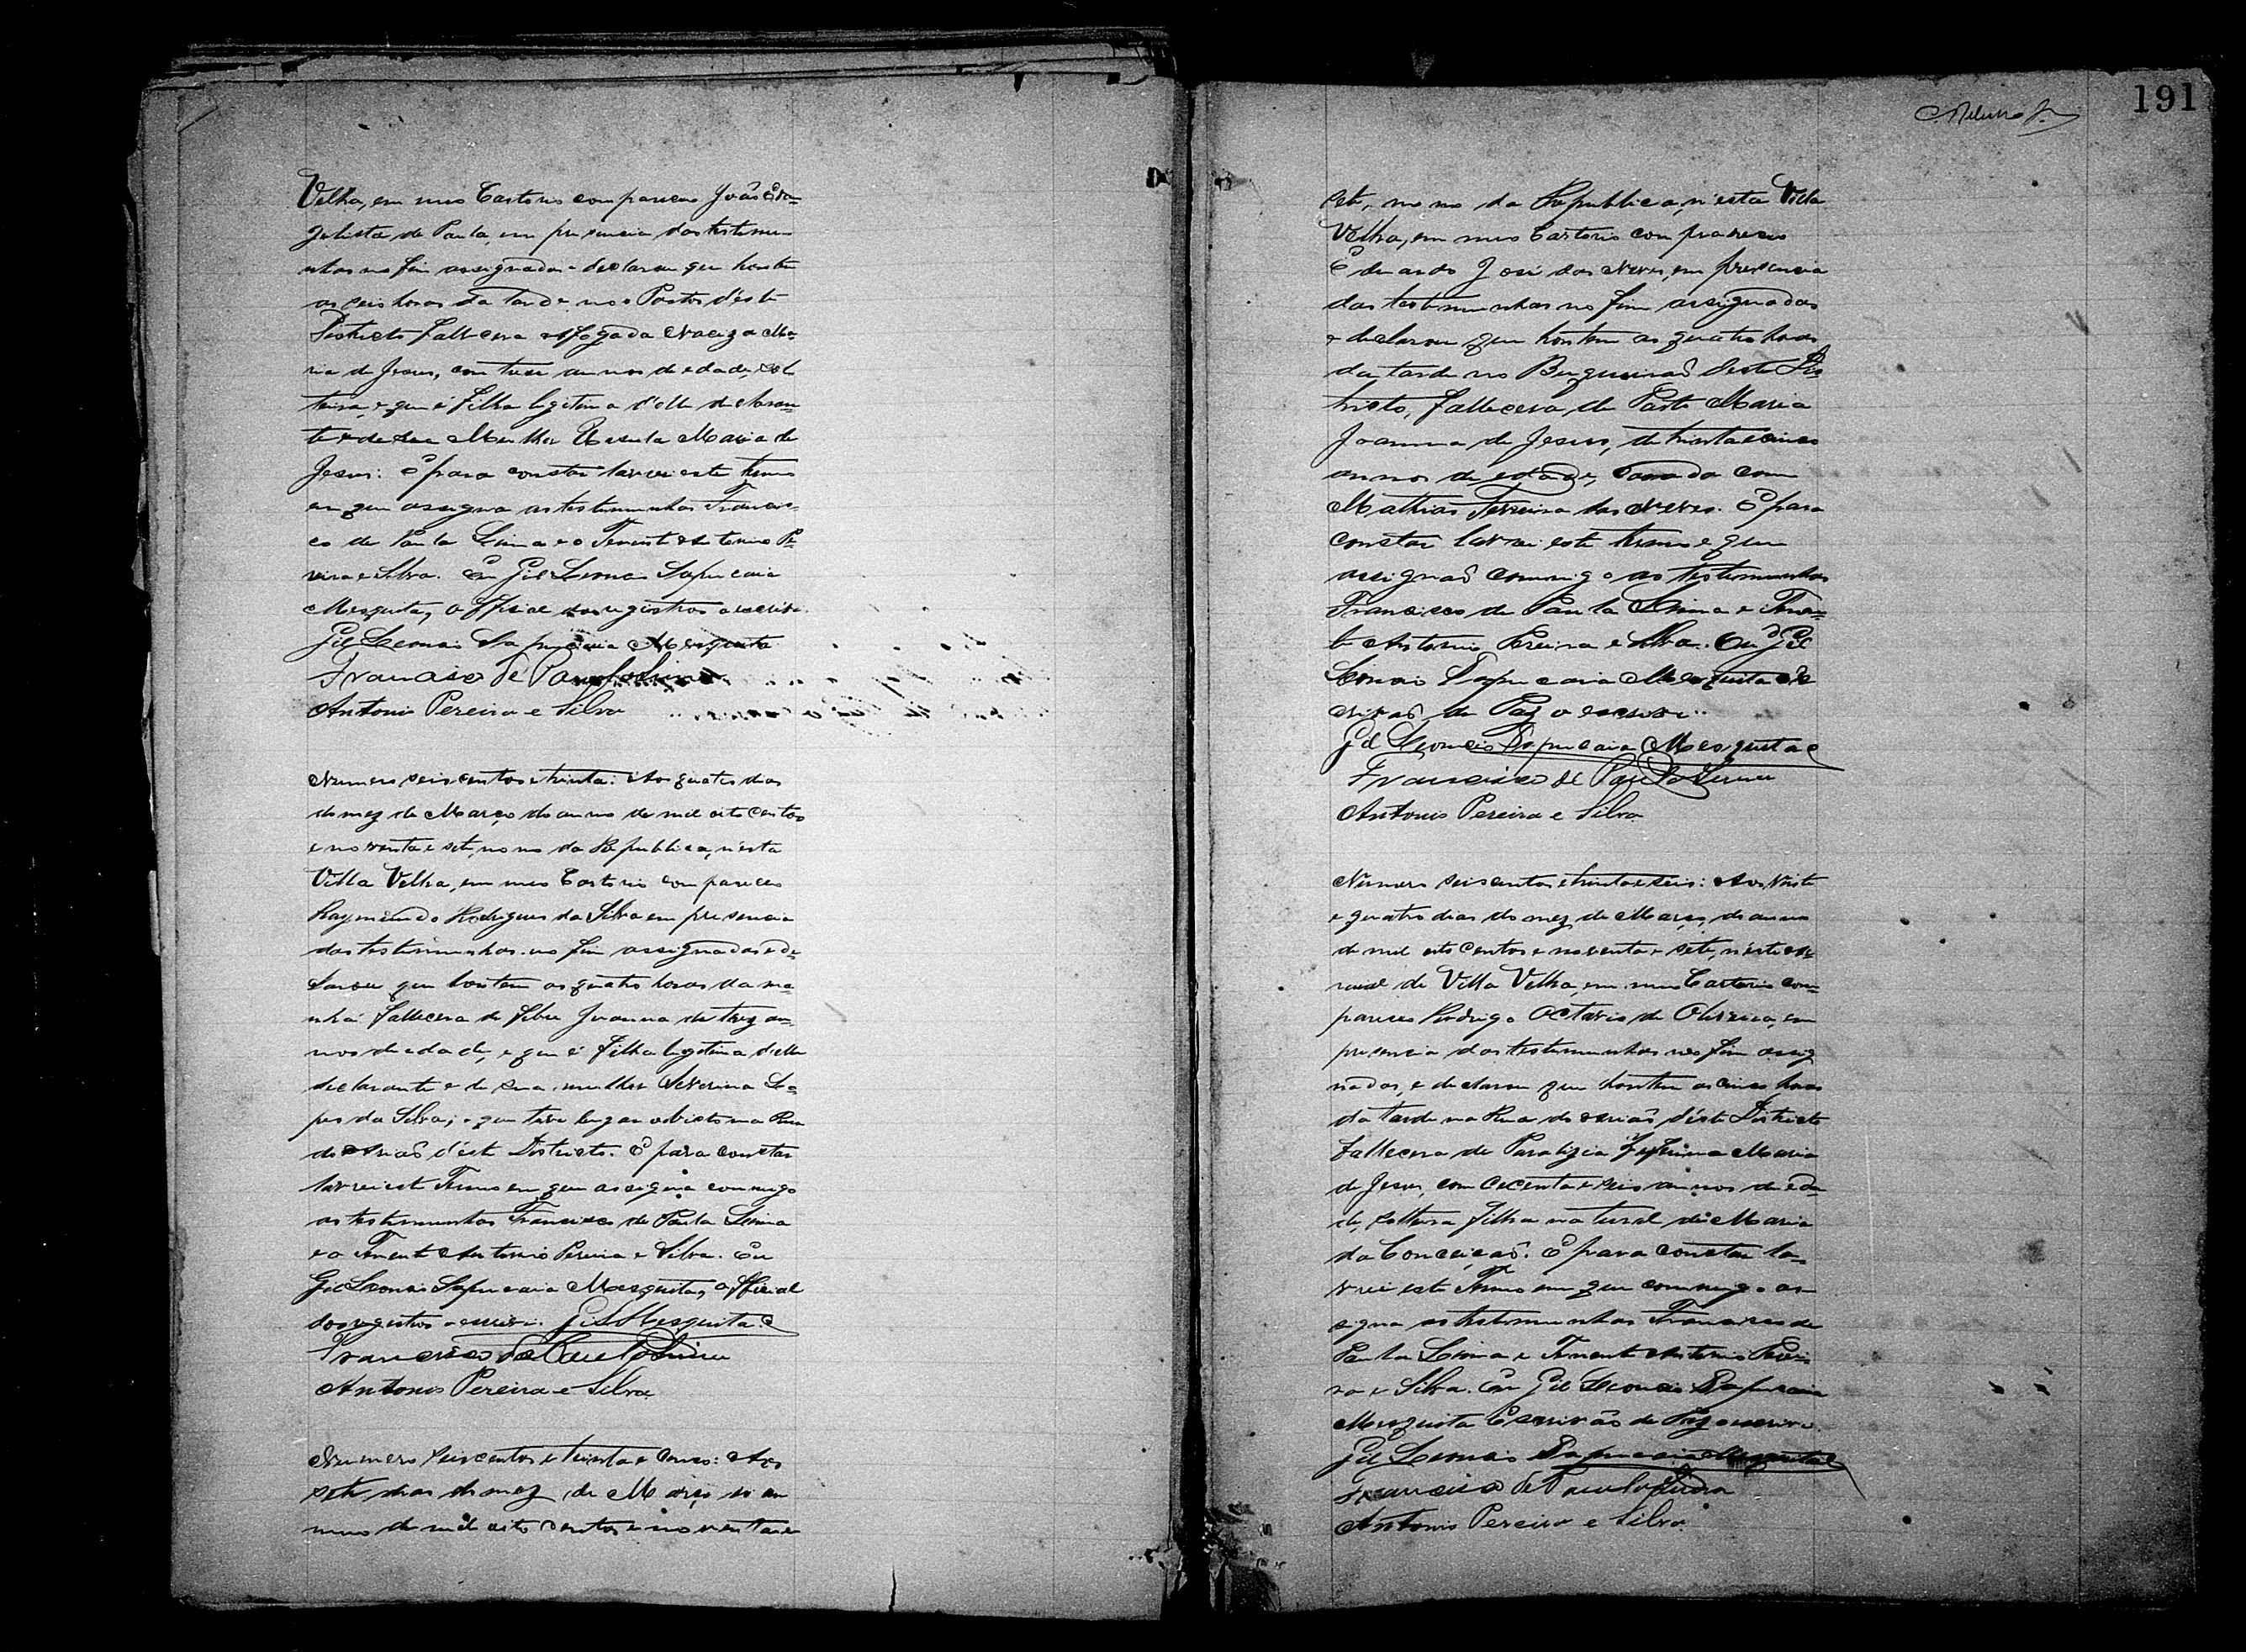 Velha, em meu Cartorio compareceu João Evan-
gelista de Paula, em presencia das testemu-
nhas no fim assignadas e declarou que hontem
as seis horas da tarde no Porto d'este
Districto fallecera affogada Naciza Ma-
ria de Jesus, com treze annos de edade, sol-
teira, e que é filha legitima d'elle declaran-
te e de sua Mulher Ursula Maria de
Jesus: E para constar lavrei este termo
em que assigna as testemunhas Francis-
co de Paula Lima e o Tenente Antonio Pe-
reira e Silva. Eu Gil Leoncio Sapucaia
Mesquita, official dos registros o escrivi.
Gil Leoncio Sapucaia Mesquita
Francisco de Paula Lima
Antonio Pereira e Silva
Numero seis centos e trinta: Aos quatro dias
do mez de Março do anno de mil oito centos
e noventa e sete, nono da Republica, n'esta
Villa Velha, em meu Cartorio compareceu
Raymundo Rodrigues da Silva em presencia
das testemunhas no fim assignadas e de-
clarou que hontem as quatro horas da ma-
nhã fallecera de febre Joanna de trez an-
nos de edade, e que é filha legitima d'elle
declarante e de sua mulher Severina Lo-
pes da Silva; e que teve lugar o obicto na Rua
do d'este Districto. E para constar
lavrei este Termo em que assigna commigo
as testemunhas Francisco de Paula Lima
e o Tenente Antonio Pereira e Silva. Eu
Gil Leoncio Sapucaia Mesquita, official
dos registros o escrivi. Gil Mesquita
Francisco de Paula Lima
Antonio Pereira e Silva
Numero seis centos e trinta e cinco: Aos
sete dias do mez de Março do an
nno de mil oito centos e noventa e
191
sete, nono da Republica, n'esta Villa
Velha, em meu Cartorio compareceu
Eduardo José das Neves, em presencia
das testemunhas no fim assignadas
e declarou que hontem as quatro horas
da tarde no deste Dis-
tricto, fallecera de Parto Maria
Joanna de Jesus, de trinta e cinco
annos de edade, Casada com
Mathias Ferreira das Neves. E para
constar lavrei este termo e que
assignaõ commigo as testemunhas
Francisco de Paula Lima e Tenen-
te Antonio Pereira e Silva. Eu Gil
Leoncio Sapucaia Mesquita es-
crivaõ de Paz o escrivi.
Gil Leoncio Sapucaia Mesquita
Francisco de Paula Lima
Antonio Pereira e Silva
Numero seis centos e trinta e seis: Aos Vinte
e quatro dias do mez de Março, do anno
de mil oito centos e noventa e sete, n'este ar-
raial de Villa Velha, em meu Cartorio com-
pareceu Rodrigo Octavio de Oliveira, em
presencia das testemunhas no fim assig
nadas, e declarou que hontem as cinco horas
da tarde na Rua do d'este Districto
fallecera de Paralizia Zeferina Maria
de Jesus, com cecenta e seis annos de eda-
de, solteira filha natural de Maria
da Conceiçaõ. E para constar la-
vrei este Termo em que commigo as-
signa as testemunhas Francisco de
Paula Lima e Tenente Antonio Perei-
ra e Silva. Eu Gil Leoncio Sapucaia
Mesquita Escrivão de Paz o escrivi.
Gil Leoncio Sapucaia Mesquita
Francisco de Paula Lima
Antonio Pereira e Silva